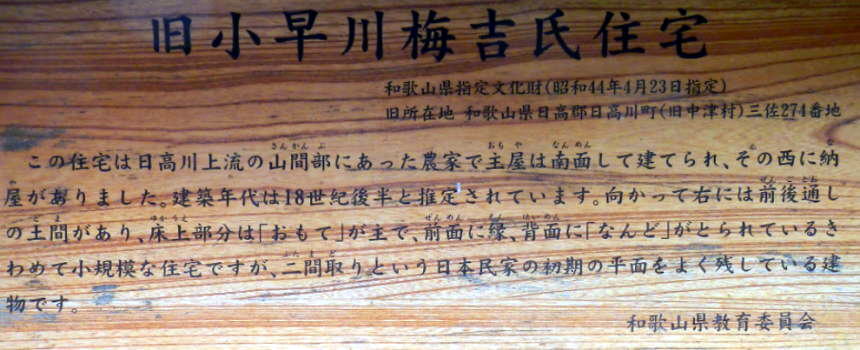 旧小早川梅吉氏住宅
和歌山県指定文化財(昭和44年4月23日指定)
旧所在地 和歌山県日高郡日高川町(旧中津村)三佐274番地
この住宅は日高川上流の山間部にあった農家で主屋は南面して建てられ、その西に納
屋がありました。建築年代は18世紀後半と推定されています。向かって右には前後通し
の土間があり、床上部分は「おもて」が主で、前面に縁、背面に「なんど」がとられているき
わめて小規模な住宅ですが、二間取りという日本民家の初期の平面をよく残している建
物です。
和歌山県教育委員会